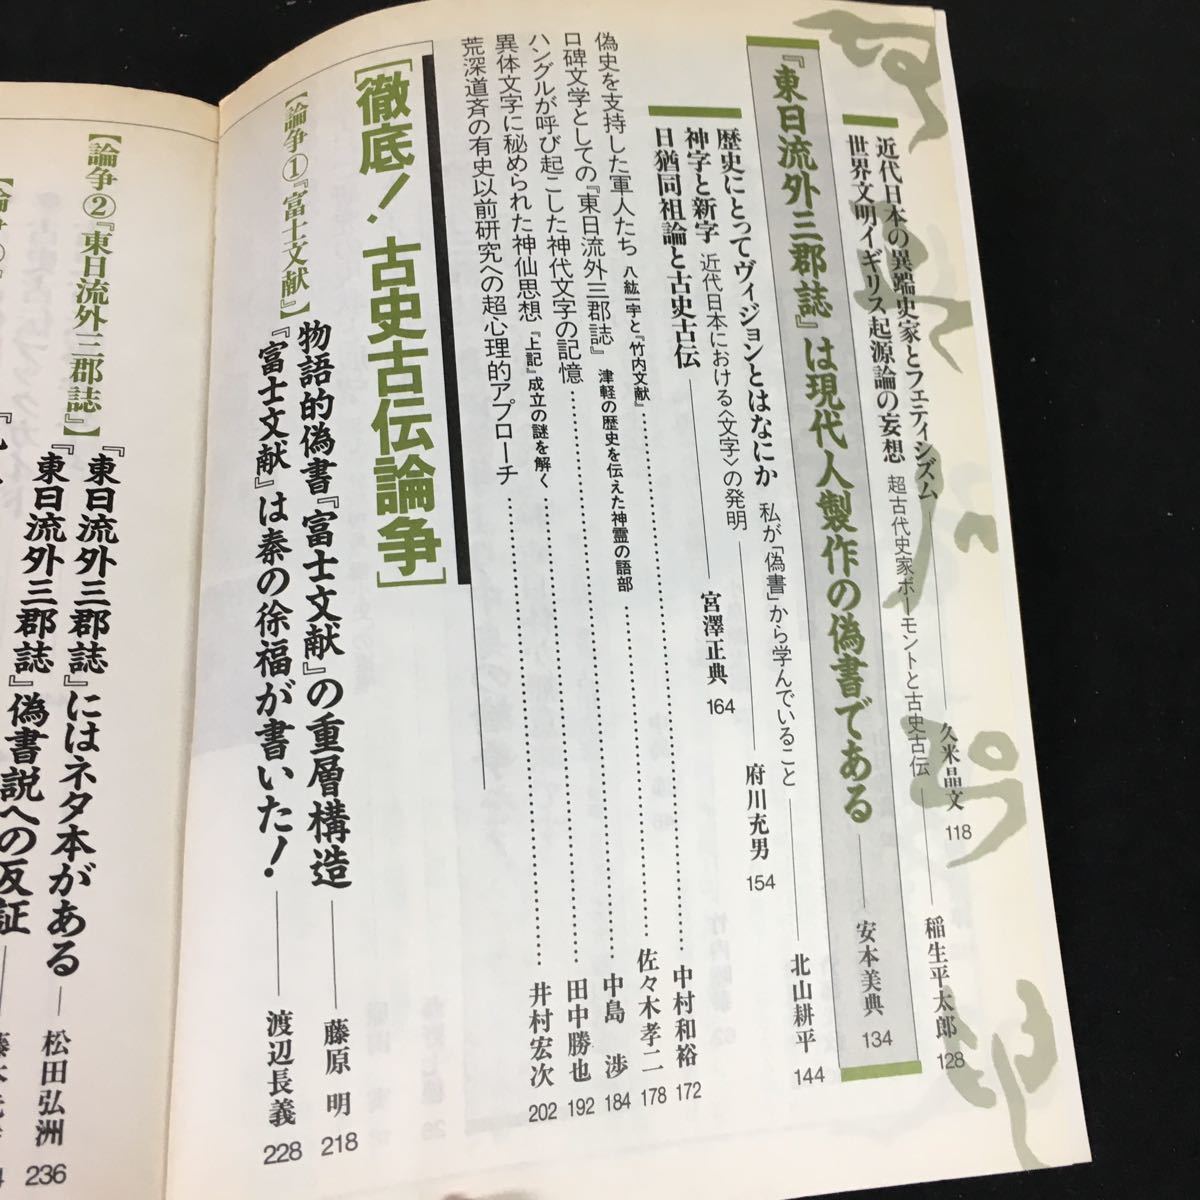 近代日本の異端史家とフェティシズム 久米晶文 118
世界文明イギリス起源論の妄想 超古代史家ボーモントと古史古伝 稲生平太郎 128
『東日流外三郡誌』は現代人製作の偽書である 安本美典 134
歴史にとってヴィジョンとはなにか 私が「偽書」から学んでいること 北山耕平 144
神字と新字 近代日本における〈文字〉の発明 府川充男 154
日猶同祖論と古史古伝 宮澤正典 164
偽史を支持した軍人たち 八紘一宇と『竹内文献』 中村和裕 172
口碑文学としての『東日流外三郡誌』 津軽の歴史を伝えた神霊の語部 佐々木孝二 178
ハングルが呼び起こした神代文字の記憶 中島 渉 184
異体文字に秘められた神仙思想 『上記』成立の謎を解く 田中勝也 192
荒深道斉の有史以前研究への超心理的アプローチ 井村宏次 202
[徹底!古史古伝論争]
【論争①『富士文献』】
物語的偽書『富士文献』の重層構造 藤原 明 218
『富士文献』は秦の徐福が書いた! 渡辺長義 228
【論争②『東日流外三郡誌』】
『東日流外三郡誌』にはネタ本がある 松田弘洲 236
『東日流外三郡誌』偽書説への反証